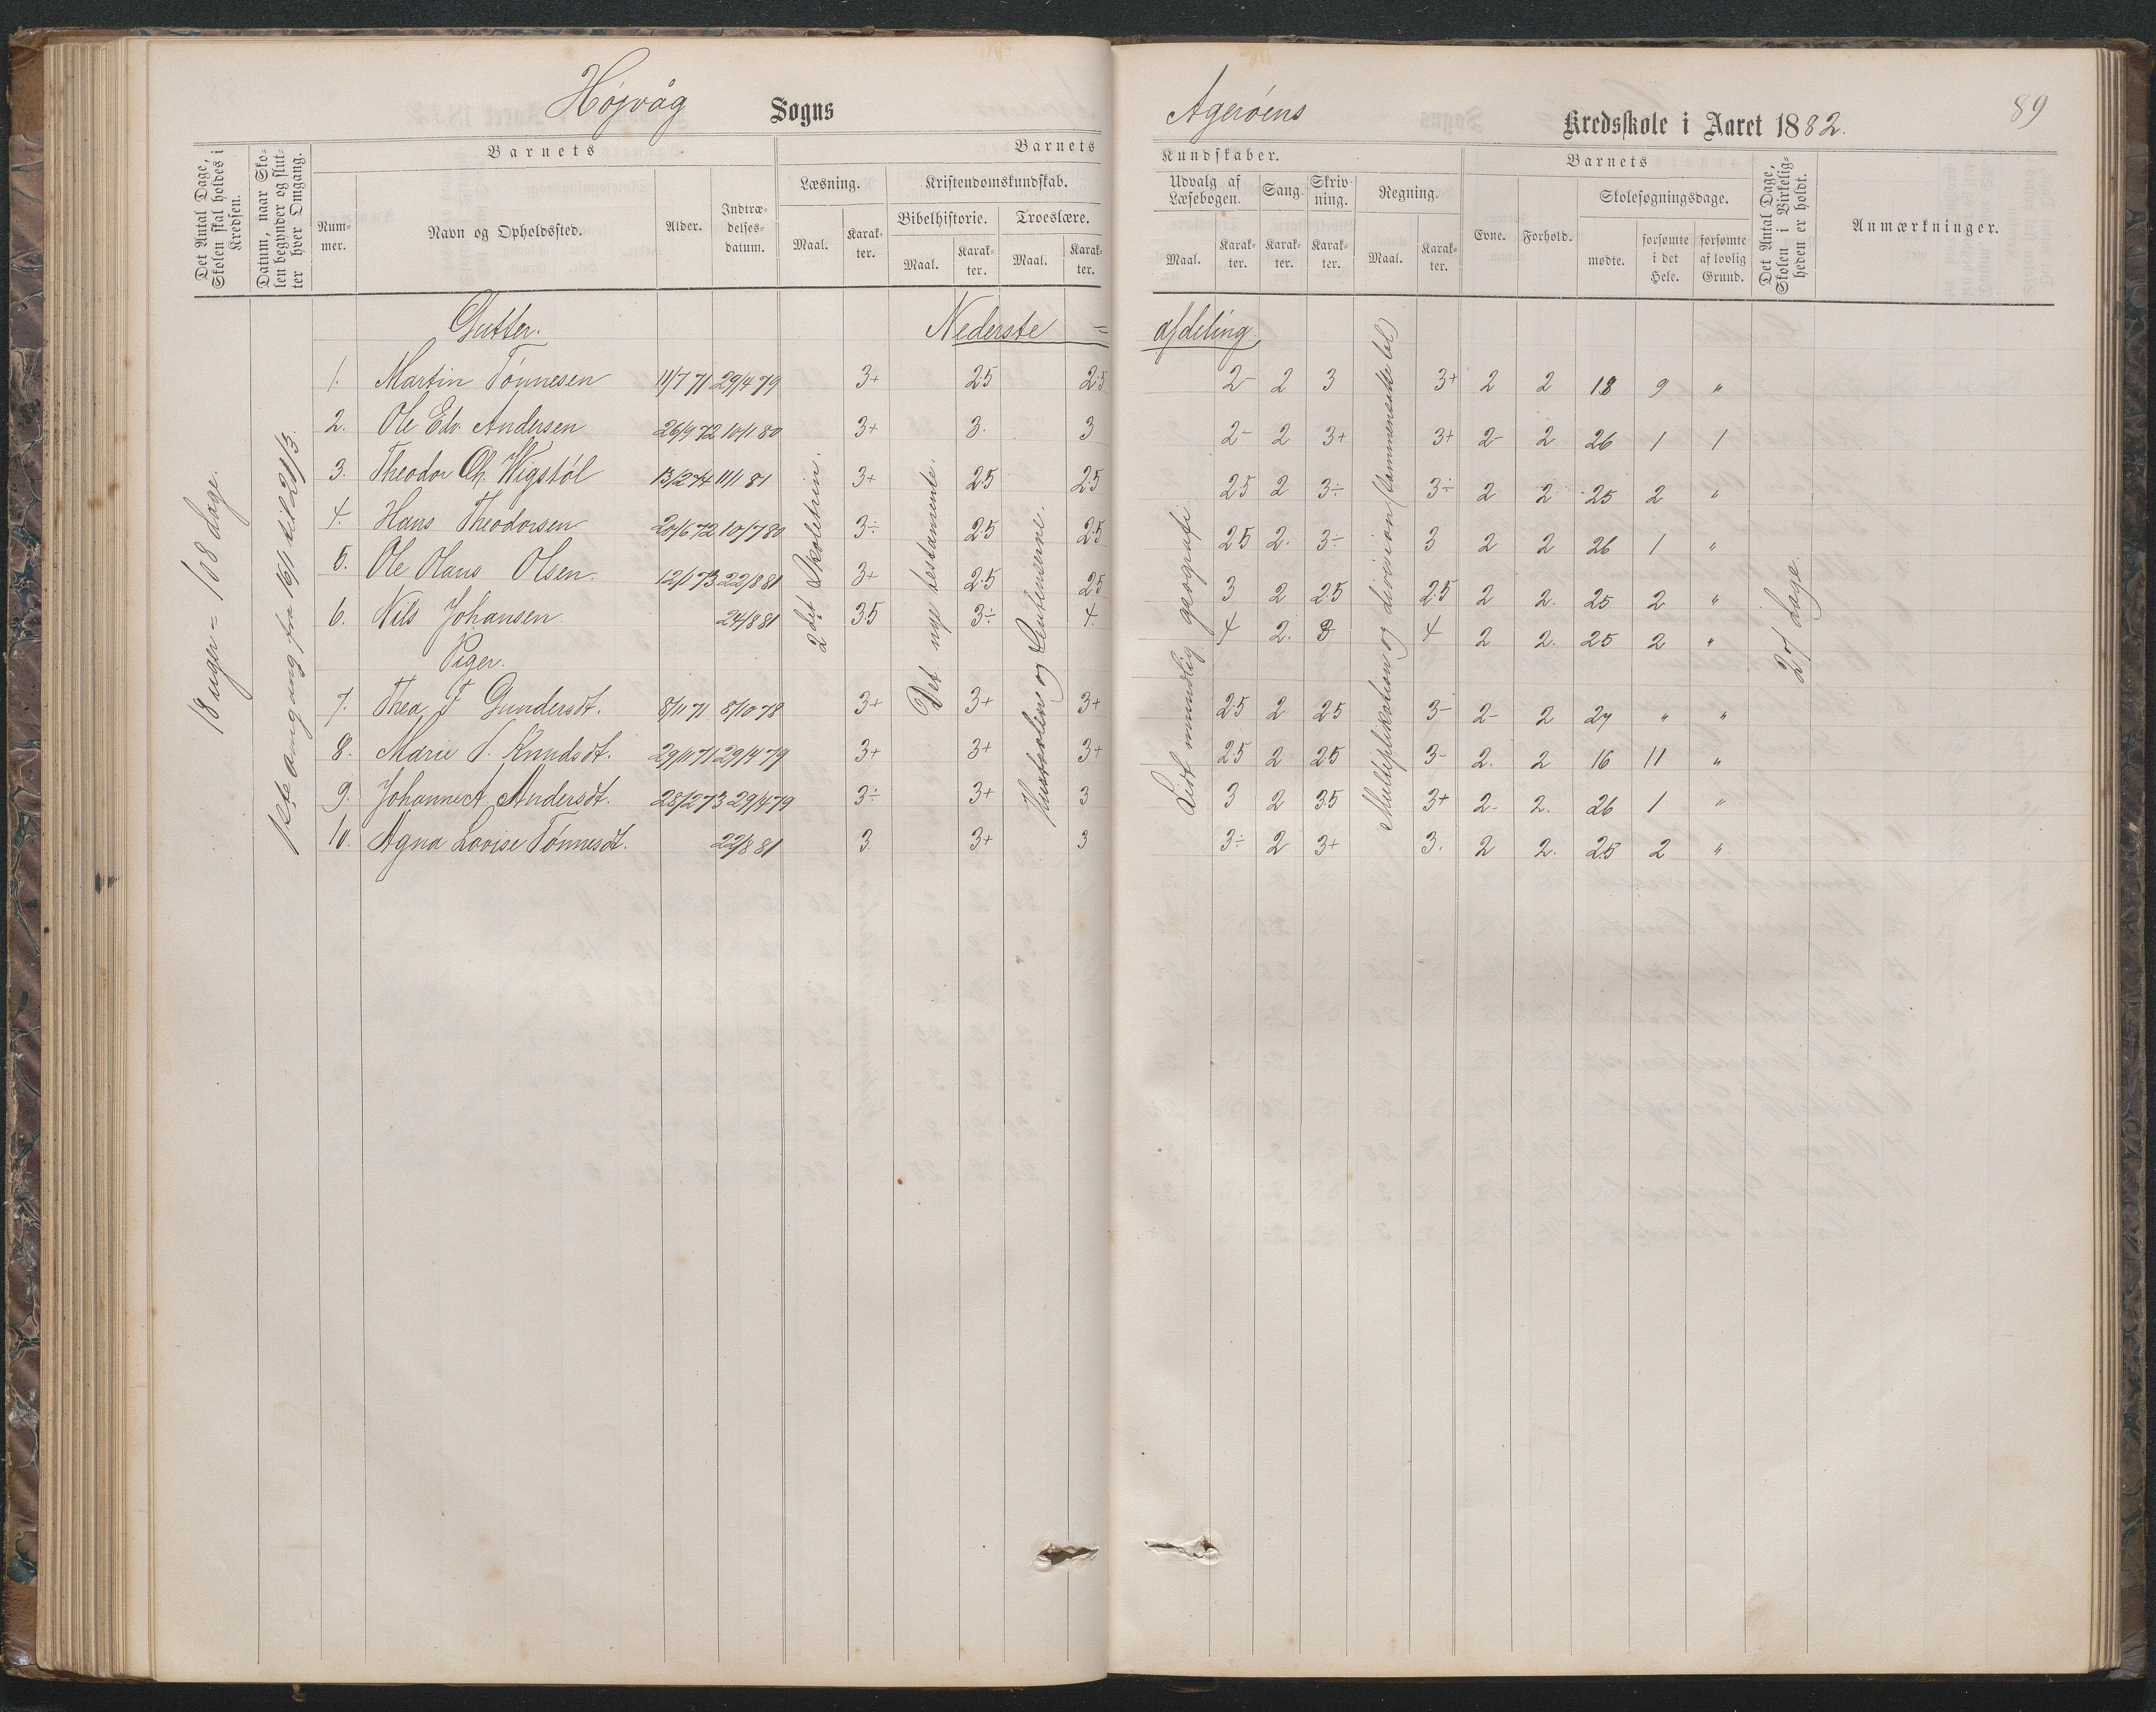 Højvåg Sogns
Agerøens Kredsskole i Aaret 1882.
89
Det Antal Dage, Skolen skal holdes i Kredsen.
Datum, naar Skolen begynder og slutter hver Omgang.
Barnets
Nummer.
Navn og Opholdssted.
Alder.
Indtrædelsesdatum.
Barnets
Læsning.
Maal.
Karakter.
Kristendomskundskab.
Bibelhistorie.
Maal.
Karakter.
Troeslære.
Maal.
Karakter.
Kundskaber.
Udvalg af Læsebogen.
Maal.
Karakter.
Sang.
Karakter.
Skrivning.
Karakter.
Regning.
Maal.
Karakter.
Barnets
Evne.
Forhold.
Skolesøgningsdage.
mødte.
forsømte i det Hele.
forsømte af lovlig Grund.
Det Antal Dage, Skolen i Virkeligheden er holdt.
Anmærkninger.
18 uger = 108 dage.
1ste omgang fra 16/1 til 21/3.
Gutter. Nederste = afdeling
2det Skoletrin.
Det nye testamente.
og Sentenserne.
Lidt mundlig geografi
Multiplikation og division
27 dage.
1. Martin Tønnesen 11/7 71 29/4 79 3+ 2.5 2.5 2- 2 3 3+ 2 2 18 9 "
2. Ole Edv. Andersen 26/9 72 10/1 80 3+ 3. 3 2- 2 3+ 3+ 2- 2 26 1 1
3. Theodor Ch. Wigstøl 13/2 74 11/1 81 3+ 2.5 2.5 2.5 2 3÷ 3÷ 2 2 25 2 "
4. Hans Theodorsen 20/6 72 10/7 80 3÷ 2.5 2.5 2.5 2. 3÷ 3 2 2 26 1 "
5. Ole Olaus Olsen. 12/1 73 22/8 81 3+ 2.5 2.5 3 2 2.5 2.5 2 2. 25 2 "
6. Nils Johansen 24/8 81 3.5 3÷ 4. 4 2. 3 4 2 2. 25 2 "
Piger.
7. Thea F Gundersdt. 8/11 71 8/10 78 3+ 3+ 3+ 2.5 2 2.5 3- 2- 2 27 " "
8. Marie T. Knudsdt. 29/11 71 29/4 79 3+ 3+ 3+ 2.5 2 2.5 3- 2. 2 16 11 "
9. Johanne A. Andersdt. 28/2 73 29/4 79 3÷ 3+ 3 3 2 3.5 3+ 2- 2. 26 1 "
10. Agna Lovise Tønnesdt. 22/8 81 3 3+ 3 3÷ 2 3+ 3. 2 2. 25 2 "